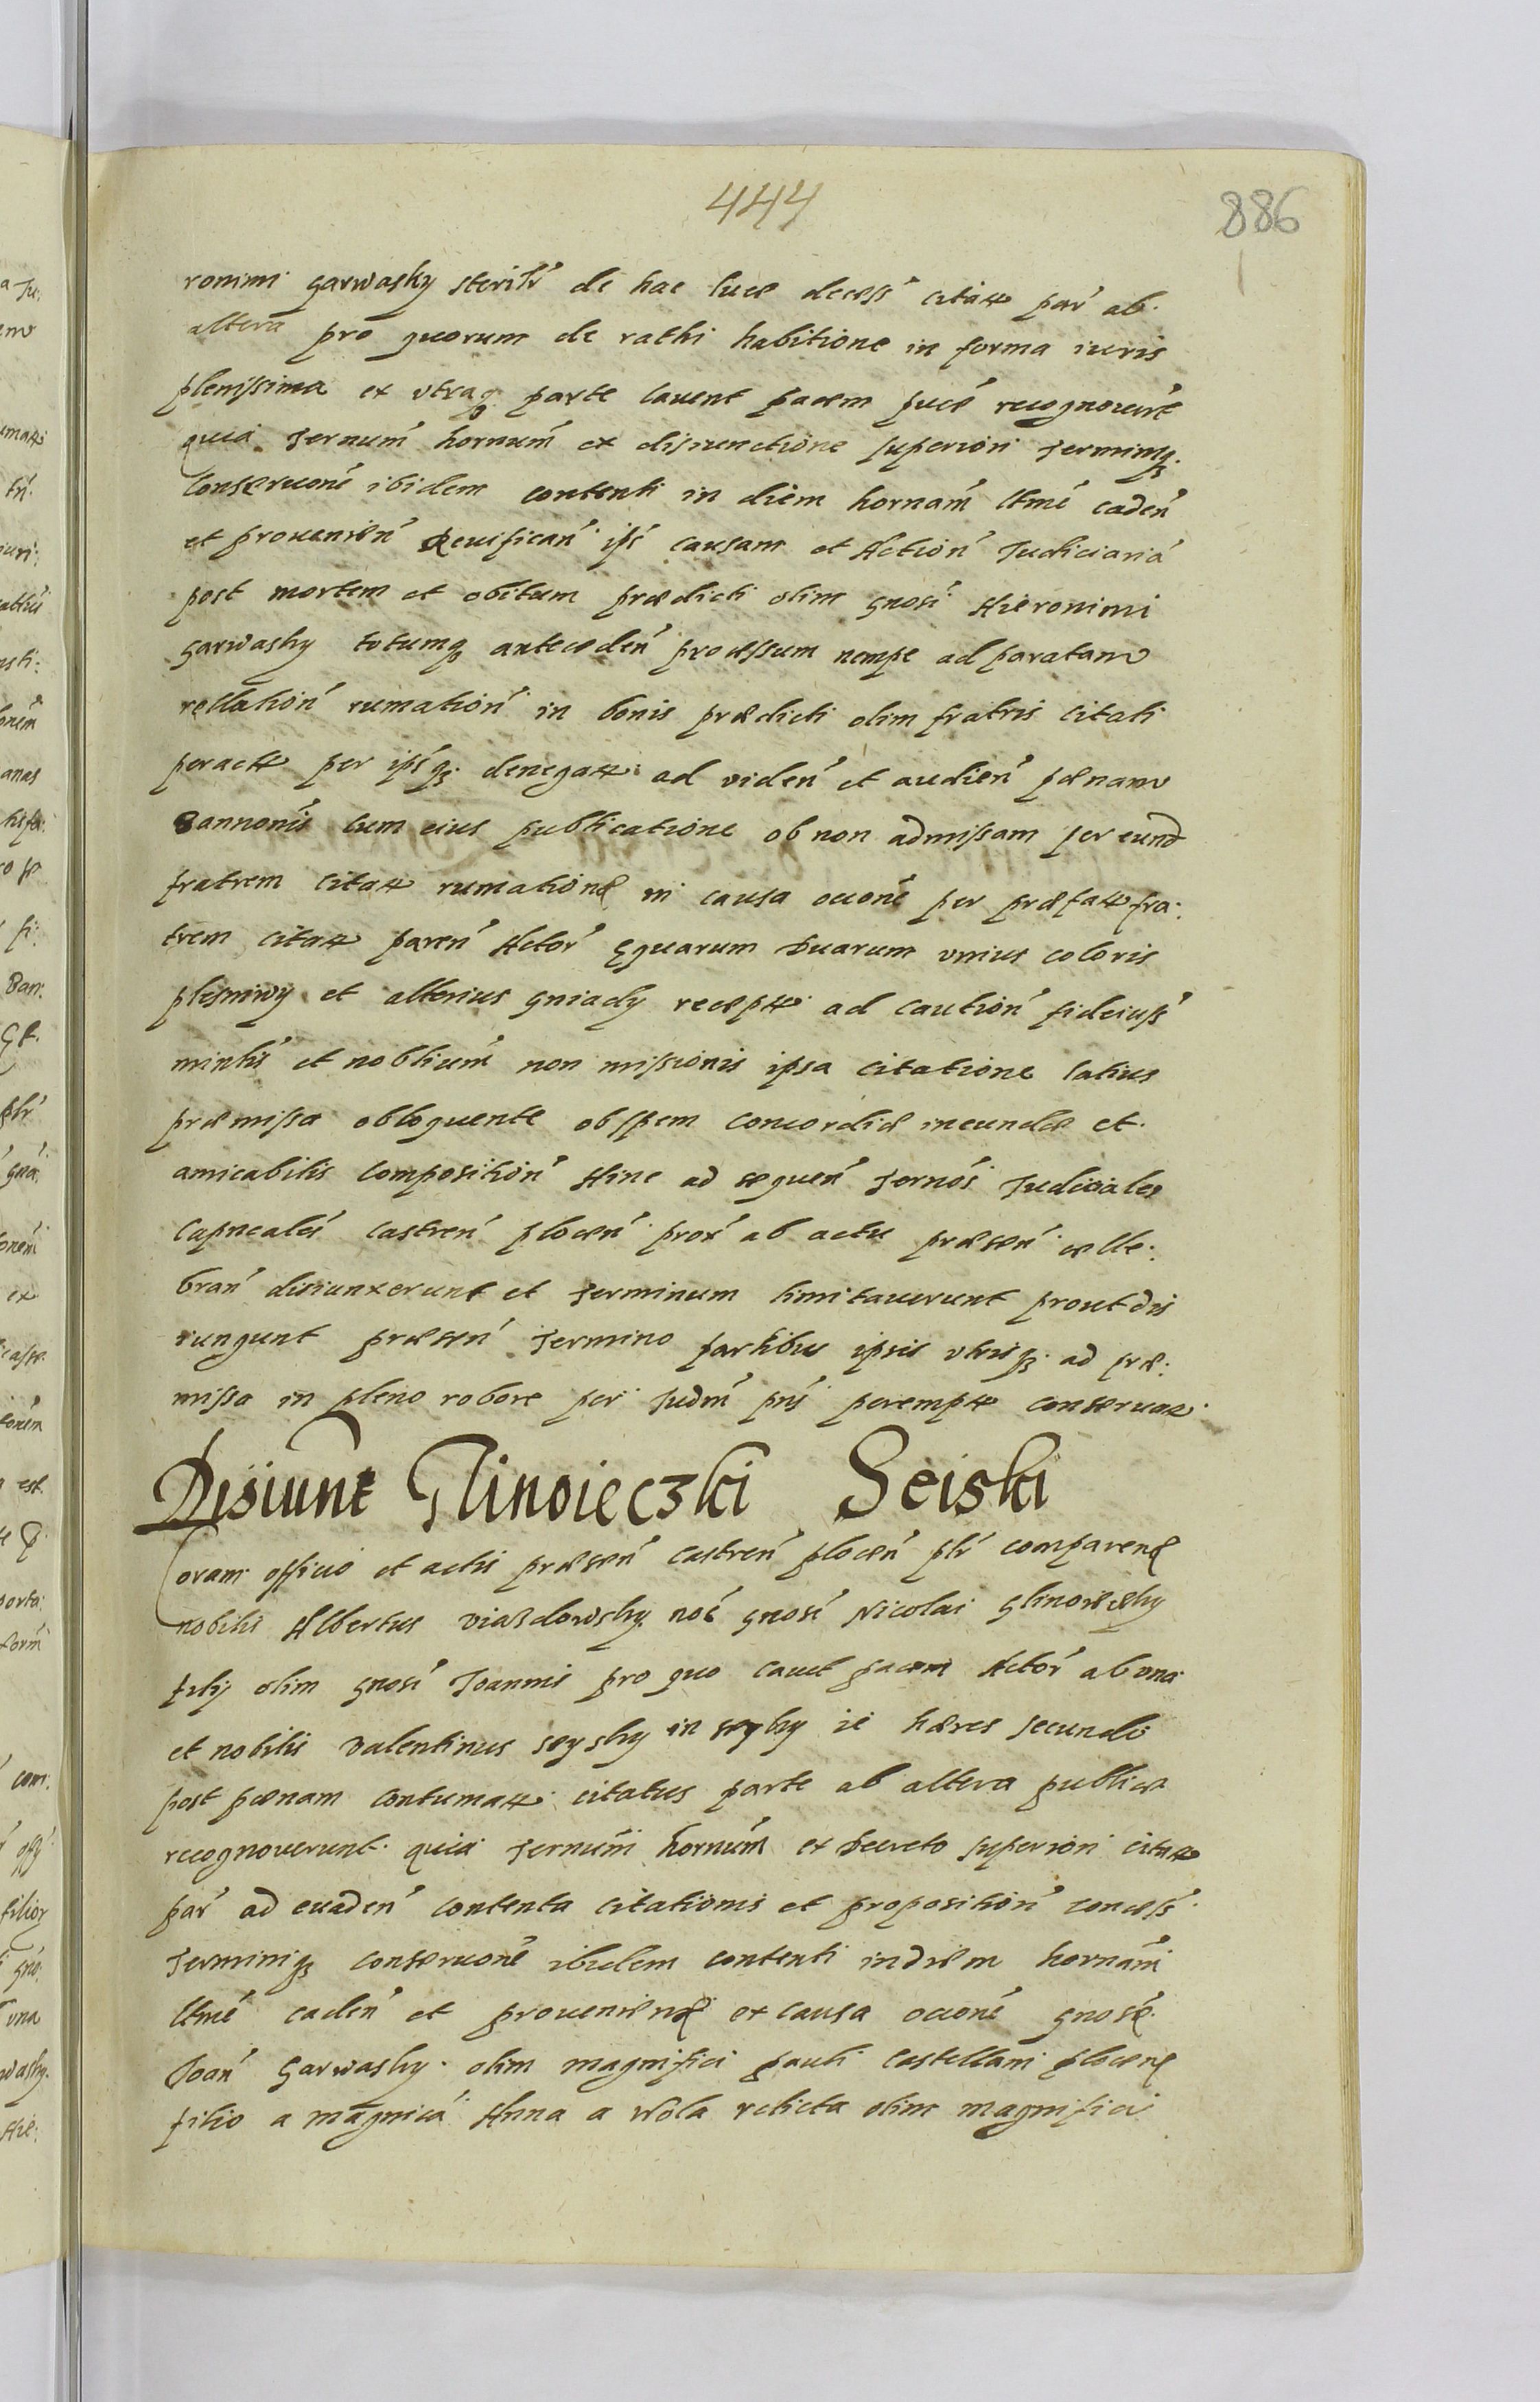 444
886
ronimi Garwasky sterilr de hac luce decess citat par ab
altera pro quorum de rathi habitione in forma iuris
plenissima ex utraq parte cavent pacem puce recognovere
quia Ternum hornum ex disiunctione superiori Terminiq
conservone ibidem contenti in diem hornam ltme caden
et provenien revifican ips causam et Action Judiciaria
post mortem et obitum prædicti olim gnosi Hieronimi
Garwasky totumq anteceden processum nempe ad paratam
rellation rumation in bonis prædicti olim fratris citati
peract per ipsq denegat ad viden et audien pænam
Bannonis cum eius publicatione ob non admissam per eund
fratrem citat rumatione in causa ocone per præfat fra:
trem citat paren Actor equarum duarum unius coloris
plesniwy et alterius gniady recept ad caution fideiuss
et noblium non missionis ipsa citatione latius
præmissa obloquente ob spem concordiæ ineundæ et
amicabilis composition Hinc ad sequen Ternos Judiciales
castren plocen prox ab actu præsen celle:
bran disiunxerunt et Terminum limitaverunt prout dis
iungunt præsen Termino partibus ipsis utrisq ad præ:
missa in pleno robore per Judm pns perempt conservat
Disiunt Glinoieczki Seiski
Coram officio et actis præsen Castren plocen plr comparen
nobilis Albertus viazdowsky noe gnosi Nicolai Glinoieczky
filij olim gnosi Joannis pro quo cavet pacem Actor ab una
et nobilis Valentinus seysky in seyky ie hæres secundo
post pænam contumat citatus parte ab altera publice
recognoverunt quia Ternum hornum ex Decreto superiori citat
par ad evaden contenta citationis et proposition concess
Terminiq conservone ibidem contenti in diem hornam
ltme caden et provenien ex causa ocone gnose
Joan Garwasky olim magnifici pauli Castellani plocen
filio a magnica Anna a Wola relicta olim magnifici